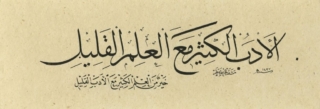 الأدب الكثير مع العلم القليل
خير من العلم الكثير مع الأدب القليل